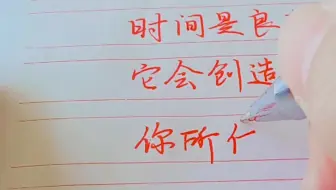 时间是良
它会创造
你所